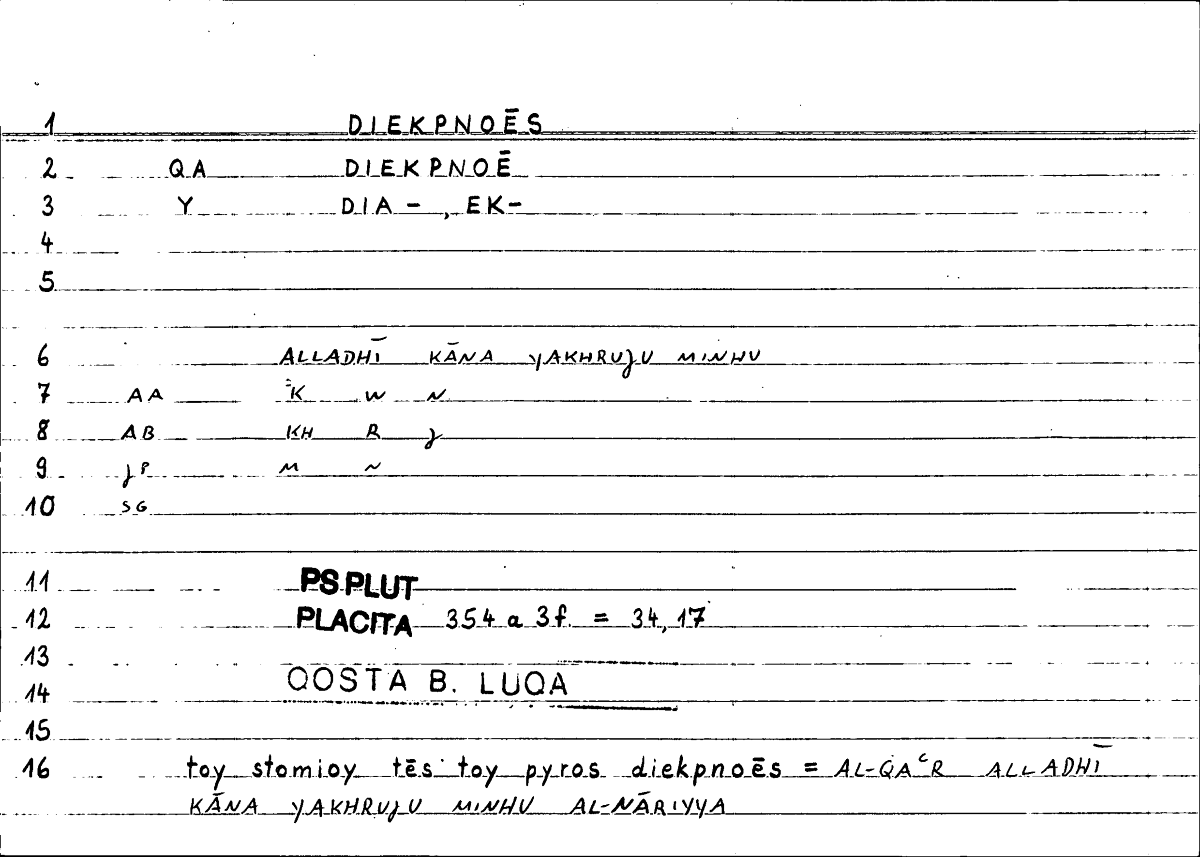 1 DIEKPNOĒS
2 QA DIEKPNOĒ
3 Y DIA-, EK-
4
5
6 ALLADHĪ KĀNA YAKHRUJU MINHU
7 AA K W N
8 AB KH R J
9 JP M N
10 SG
11 PS.PLUT
12 PLACITA 354 a 3f. = 34,17
13
14 QOSTA B. LUQA
15
16 toy stomioy tēs toy pyros diekpnoēs = AL-QAʿR ALLADHĪ
KĀNA YAKHRUJU MINHU AL-NĀRIYYA